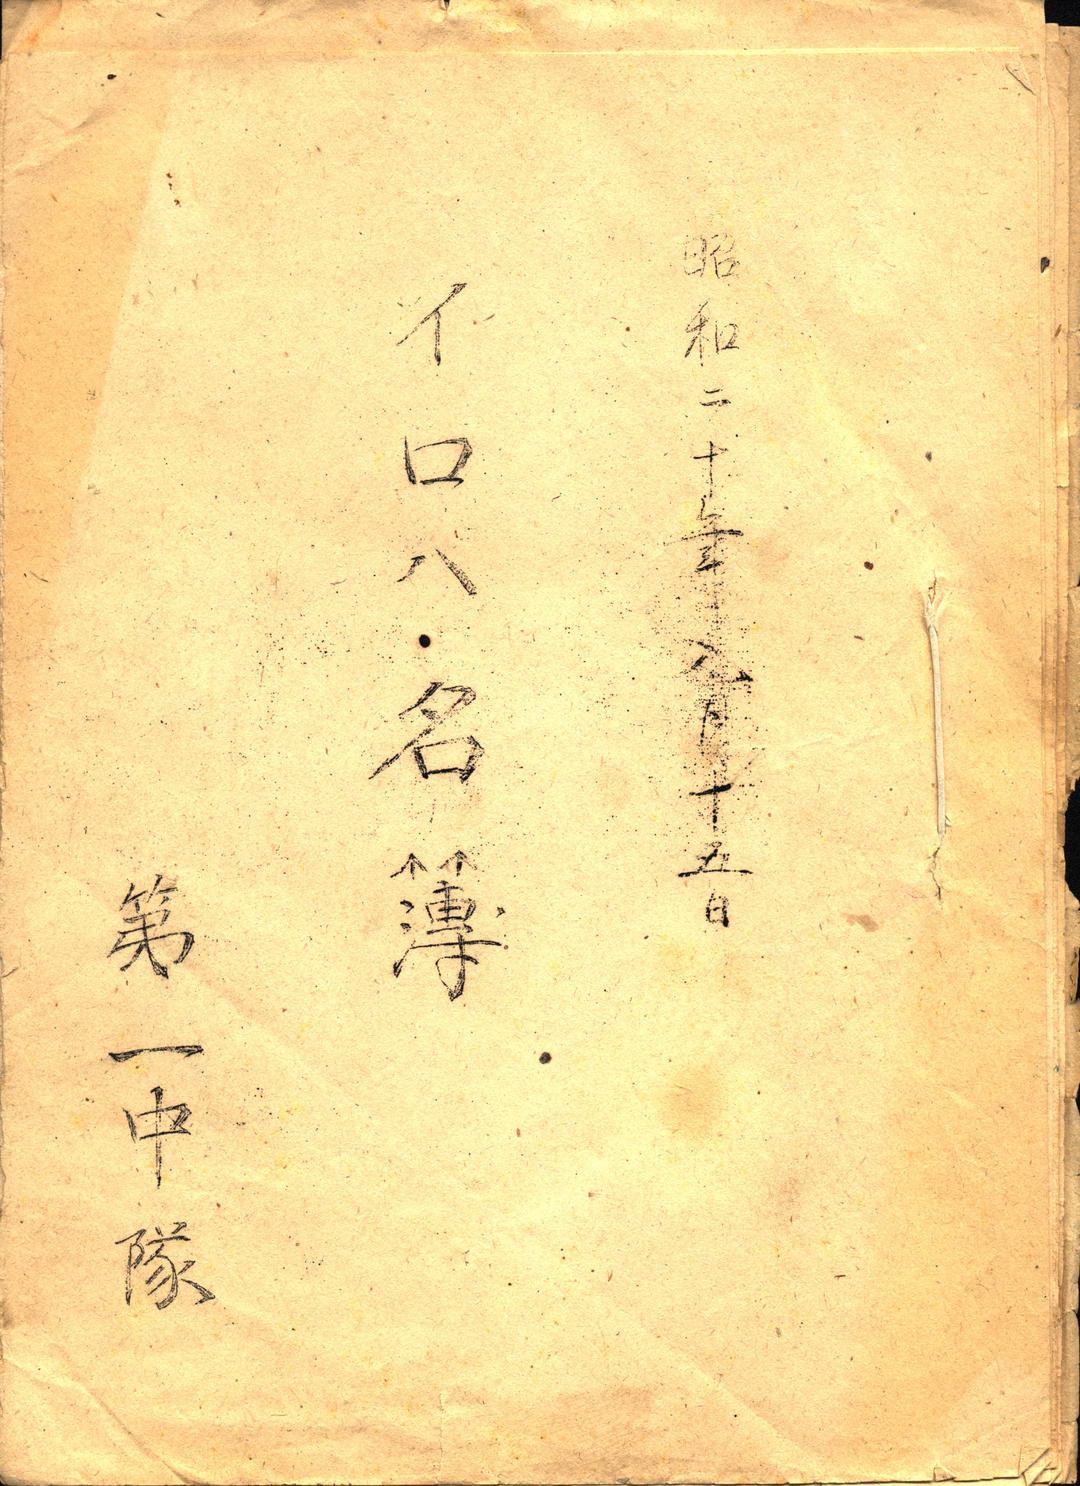 昭和二十年九月十五日
イロハ・名簿
第一中隊